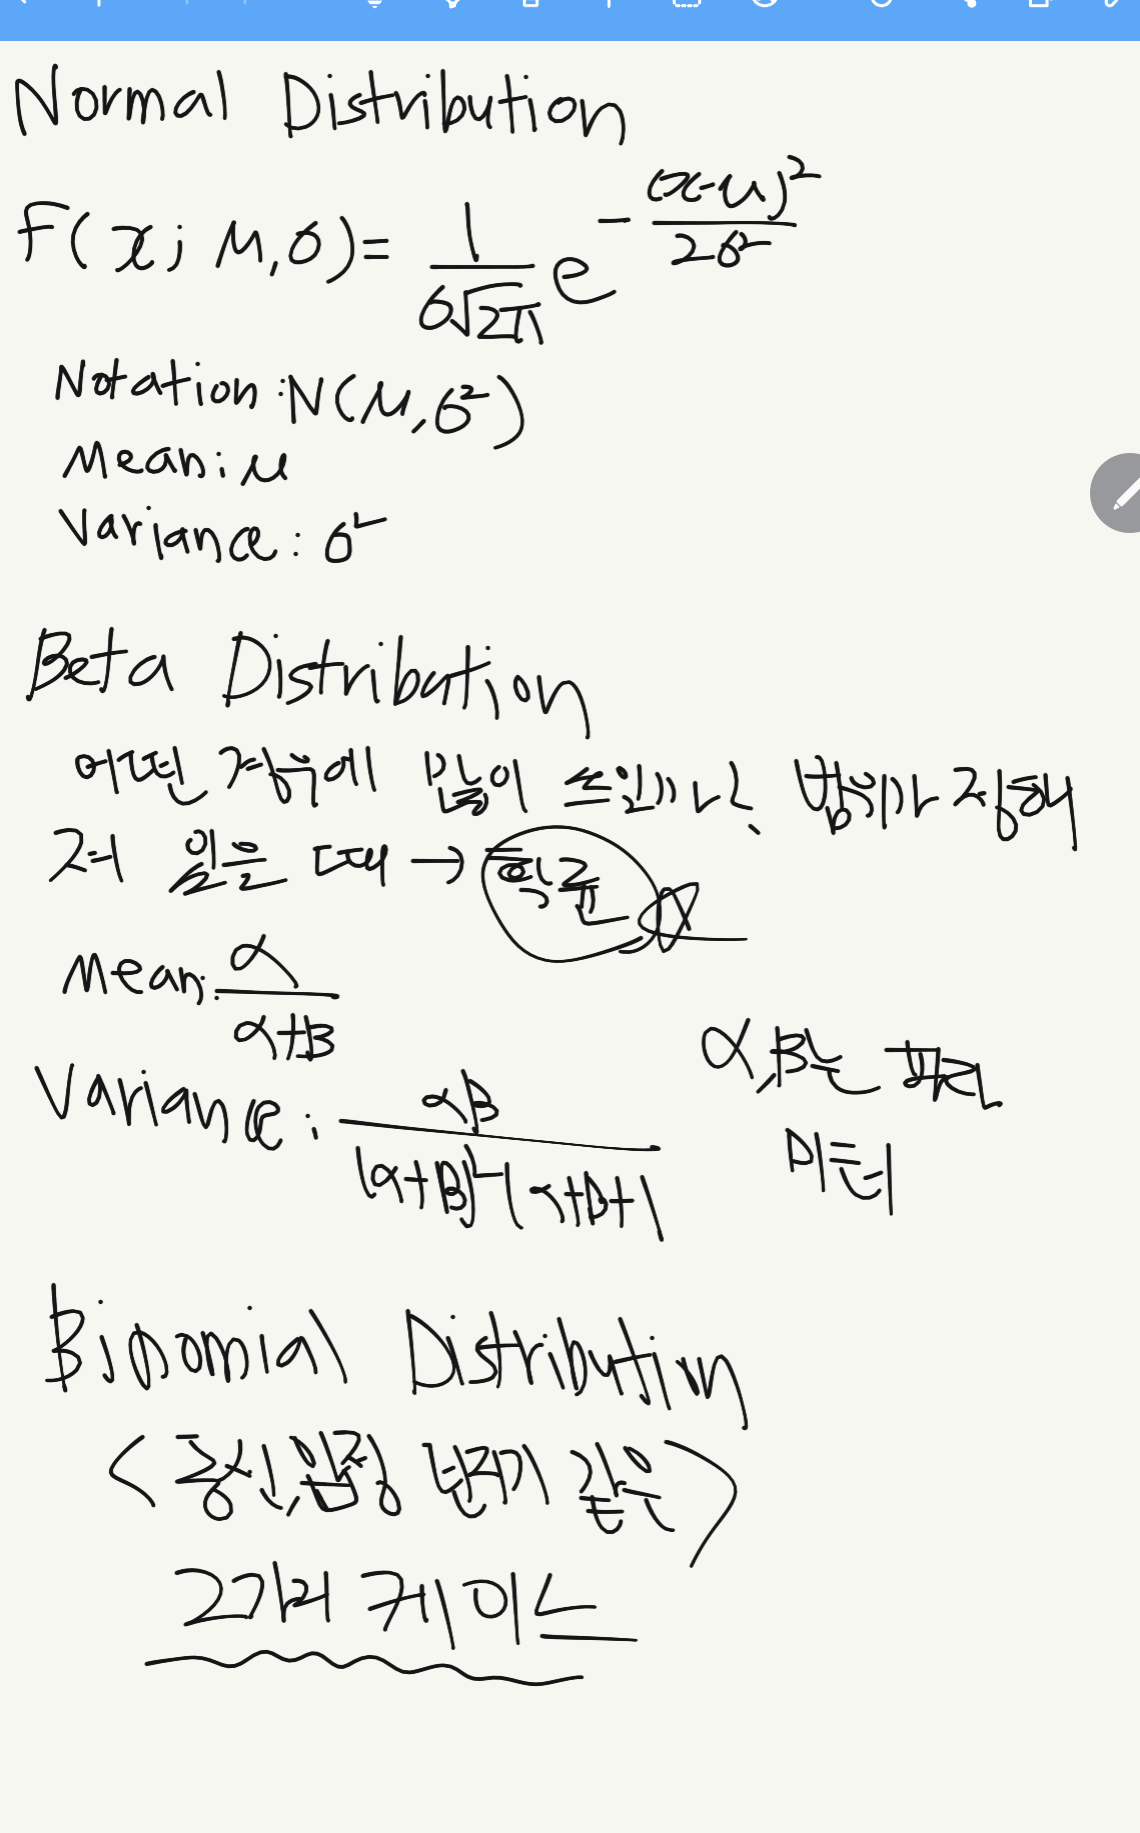 Normal Distribution
F(x; μ,σ)= 1/(σ√2π) e^-(x-μ)²/2σ²
Notation: N(μ,σ²)
Mean: μ
Variance: σ²
Beta Distribution
어떤 자극에 많이 쏠리나, 범위가 정해
져 있을 때 → 확률
Mean: α/(α+B)
α,B는 파라
미터
Variance: αB/(α+B)²(α+B+1
Binomial Distribution
<양, 같은>
2가지 케이스